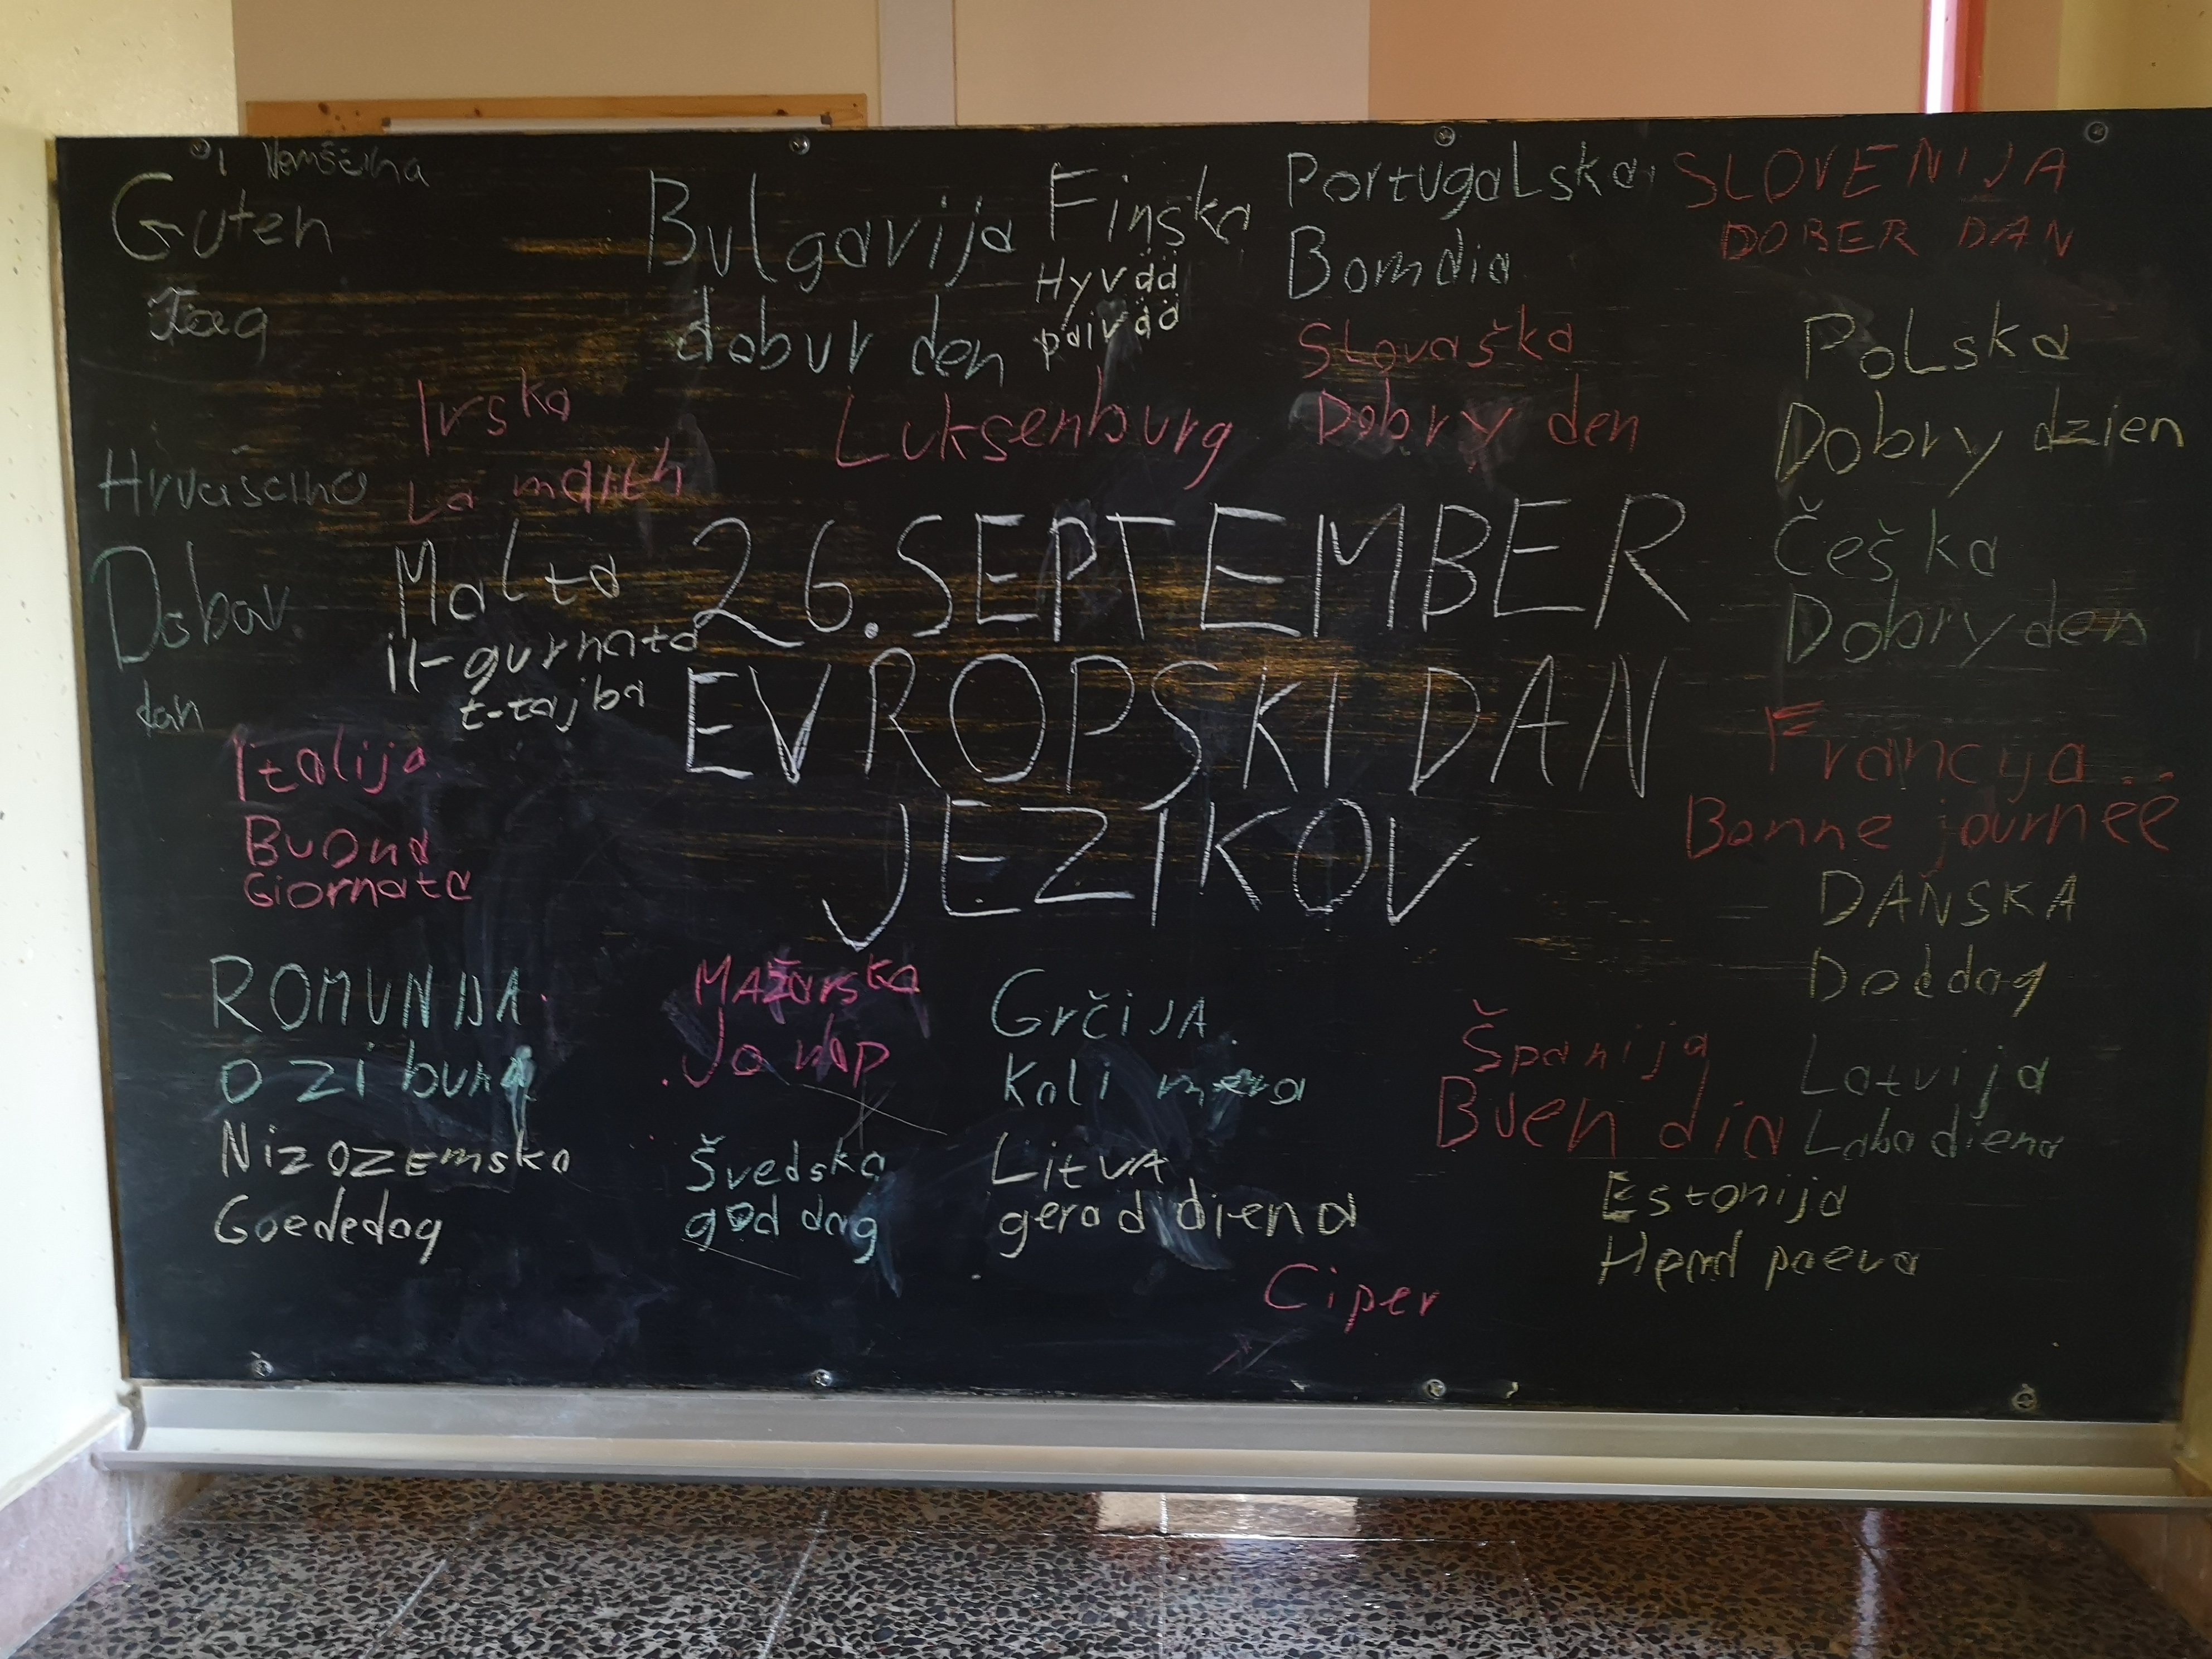 Nemščina
Guten
Tag
Bulgarija
dobur den
Finska
Hyvää
päivää
Portugalska
Bomdia
SLOVENIJA
DOBER DAN
Slovaška
Dobry den
Polska
Dobry dzien
Irska
La maith
Luksenburg
Hrvaščina
Dobar
dan
Malta
il-gurnata
t-tajba
26. SEPTEMBER
EVROPSKI DAN
JEZIKOV
Češka
Dobryden
Italija
Buona
Giornata
Francija
Bonne journëë
DANSKA
Doddag
ROMUNIJA
O ZI buna
Mažarska
Jo nap
Grčija
Kali mera
Španija
Buen día
Latvija
Labadiena
Nizozemska
Goededag
Švedska
god dag
Litva
gerad diena
Estonija
Head paeva
Ciper